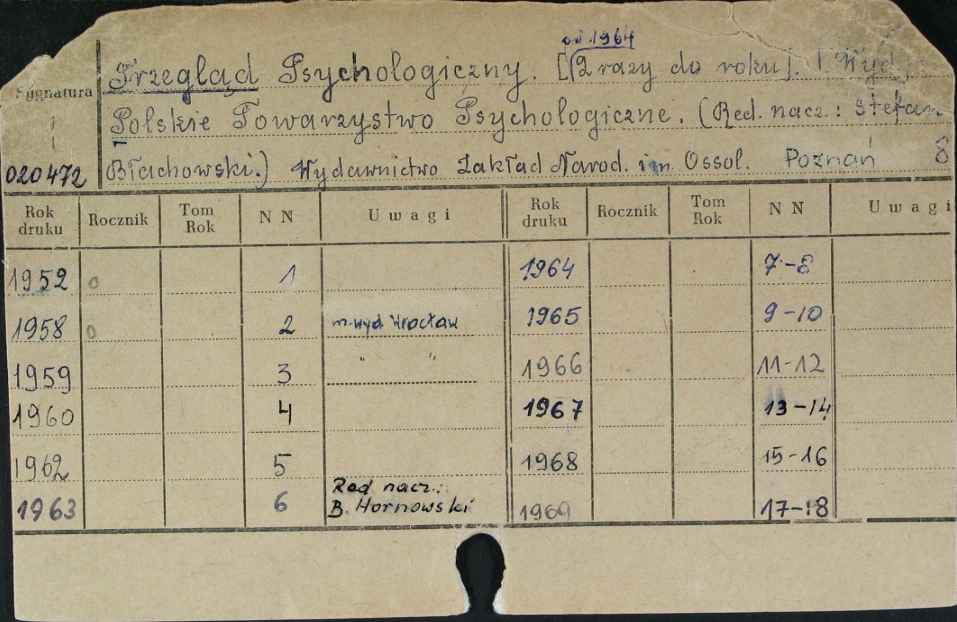 od 1964
Przegląd Psychologiczny. [(2 razy do roku]. Wyd.
Sygnatura
Polskie Towarzystwo Psychologiczne. (Red. nacz.: Stefan
020472 Błachowski.) Wydawnictwo Zakład Narod. im. Ossol. Poznań 8
Rok druku Rocznik Tom Rok N N Uwagi Rok druku Rocznik Tom Rok N N Uwagi
1952 0 1 1964 7-8
1958 0 2 m. wyd Wrocław 1965 9-10
1959 3 " " 1966 11-12
1960 4 1967 13-14
1962 5 1968 15-16
1963 6 Red nacz.: B. Hornowski 1969 17-18